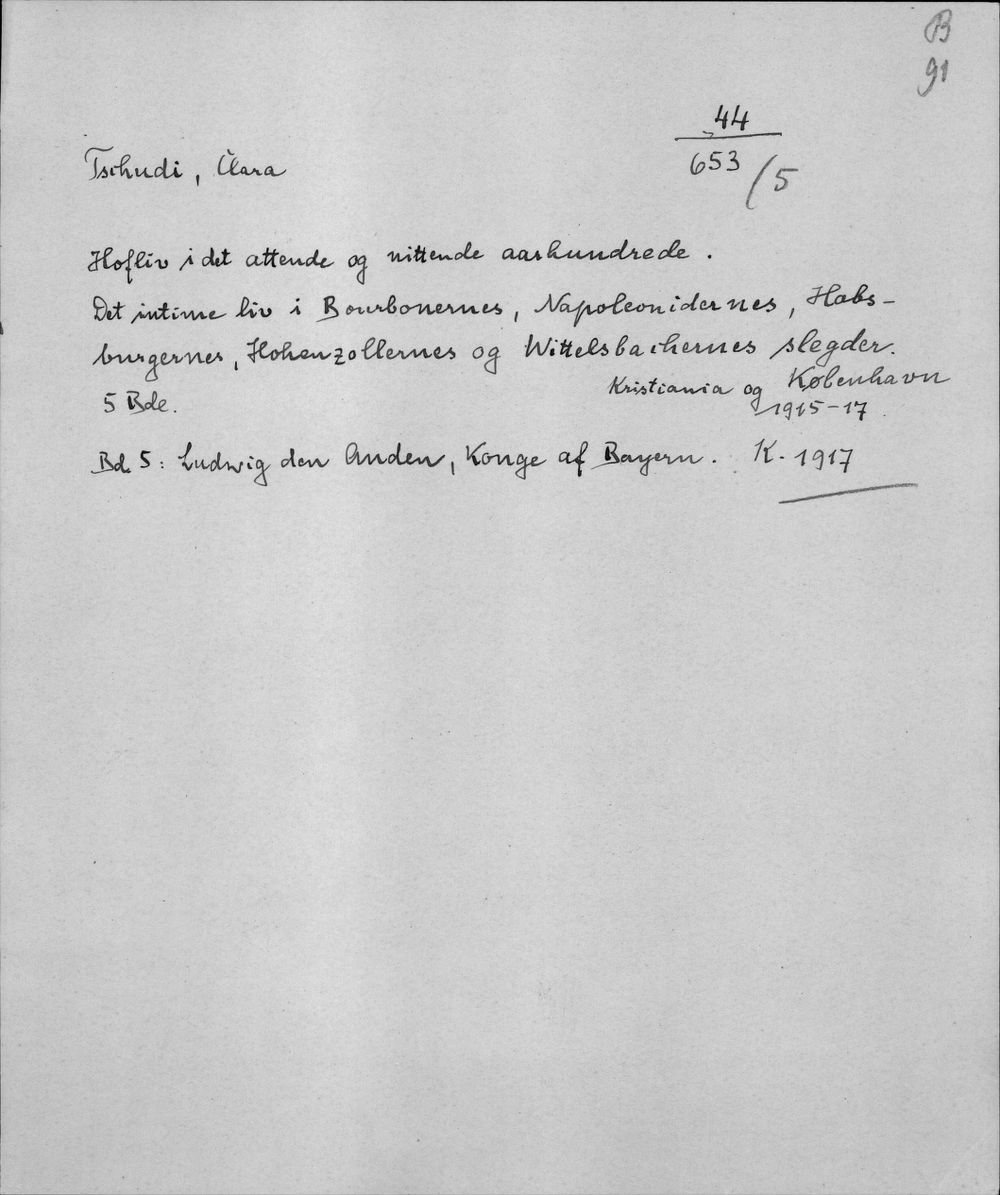 B
91
44
653/5
Tschudi, Clara
Hofliv i det attende og nittende aarhundrede.
Det intime liv i Bourbonernes, Napoleonidernes, Habs-
burgernes, Hohenzollernes og Wittelsbachernes slegder.
5 Bde. Kristiania og København
1915-17.
Bd. 5: Ludwig den Anden, Konge af Bayern. K. 1917